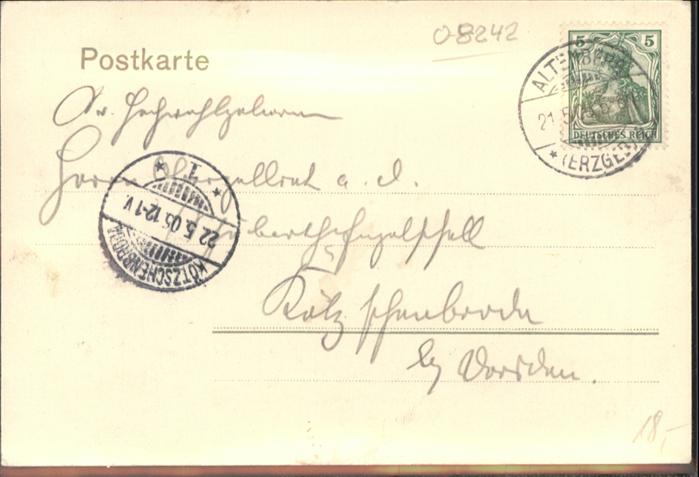 O-8242
Postkarte
5 5
DEUTSCHES REICH
ALTENBERG
21.5.
* (ERZGEB.)
Sr. Hochwohlgeboren
Herrn
a. D.
* 1. *
22.5.05.12-1V.
KÖTZSCHENBRODA
Kötzschenbroda
bei Dresden.
18,-